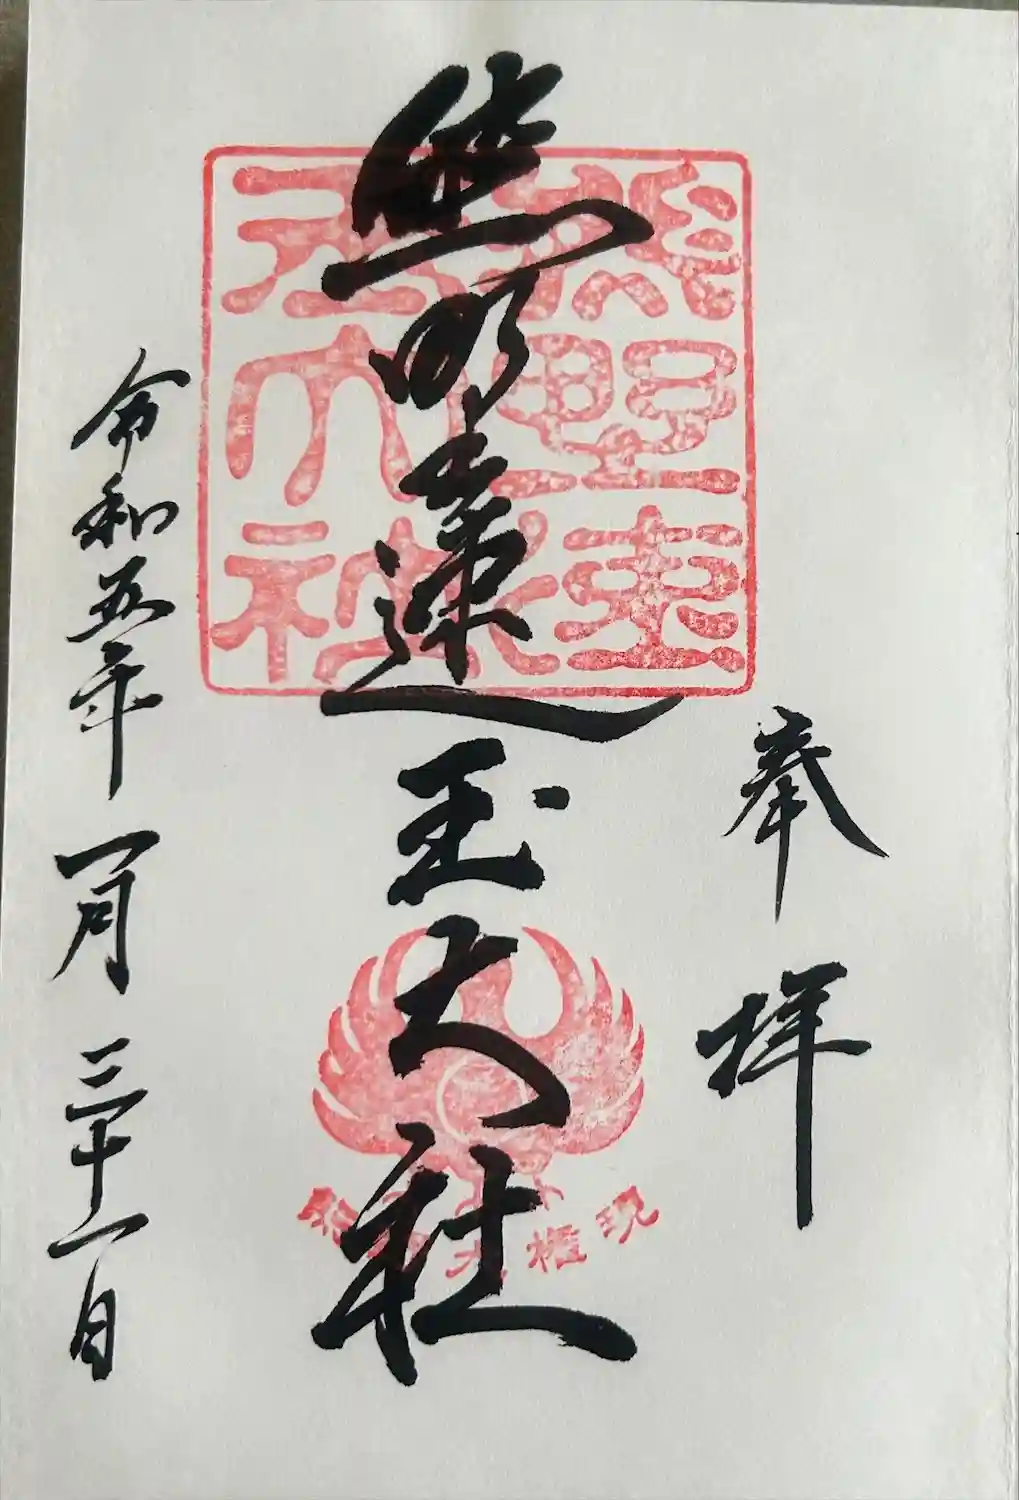 奉拝
熊野速玉大社
熊野速玉大社
熊野大権現
令和五年一月三十一日